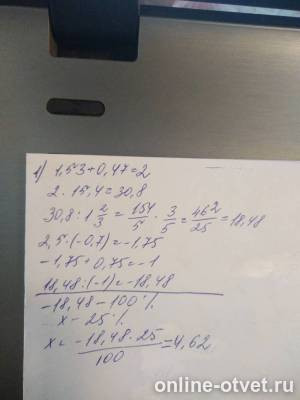 1) 1,53+0,47=2
2 · 15,4=30,8
30,8 : 1 2/3 = 154/5 · 3/5 = 462/25 = 18,48
2,5·(-0,7)=-1,75
-1,75+0,75=-1
18,48:(-1)=-18,48
-18,48-100%
x-25%
x= -18,48·25/100 =4,62
online-otvet.ru